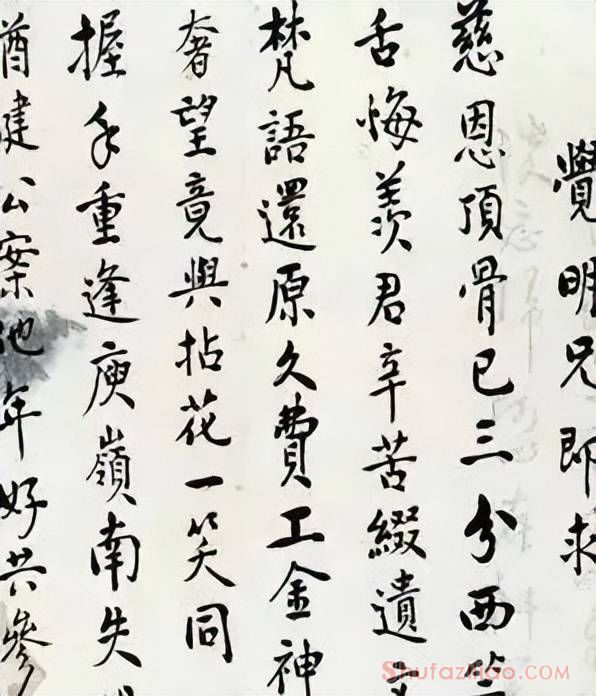 覺明兄即求
慈恩頂骨已三分西竺
舌悔羨君辛苦綴遺
梵語還原久費工金神
奢望竟與拈花一笑同
握手重逢庾嶺南失
猶健公案他年好共參